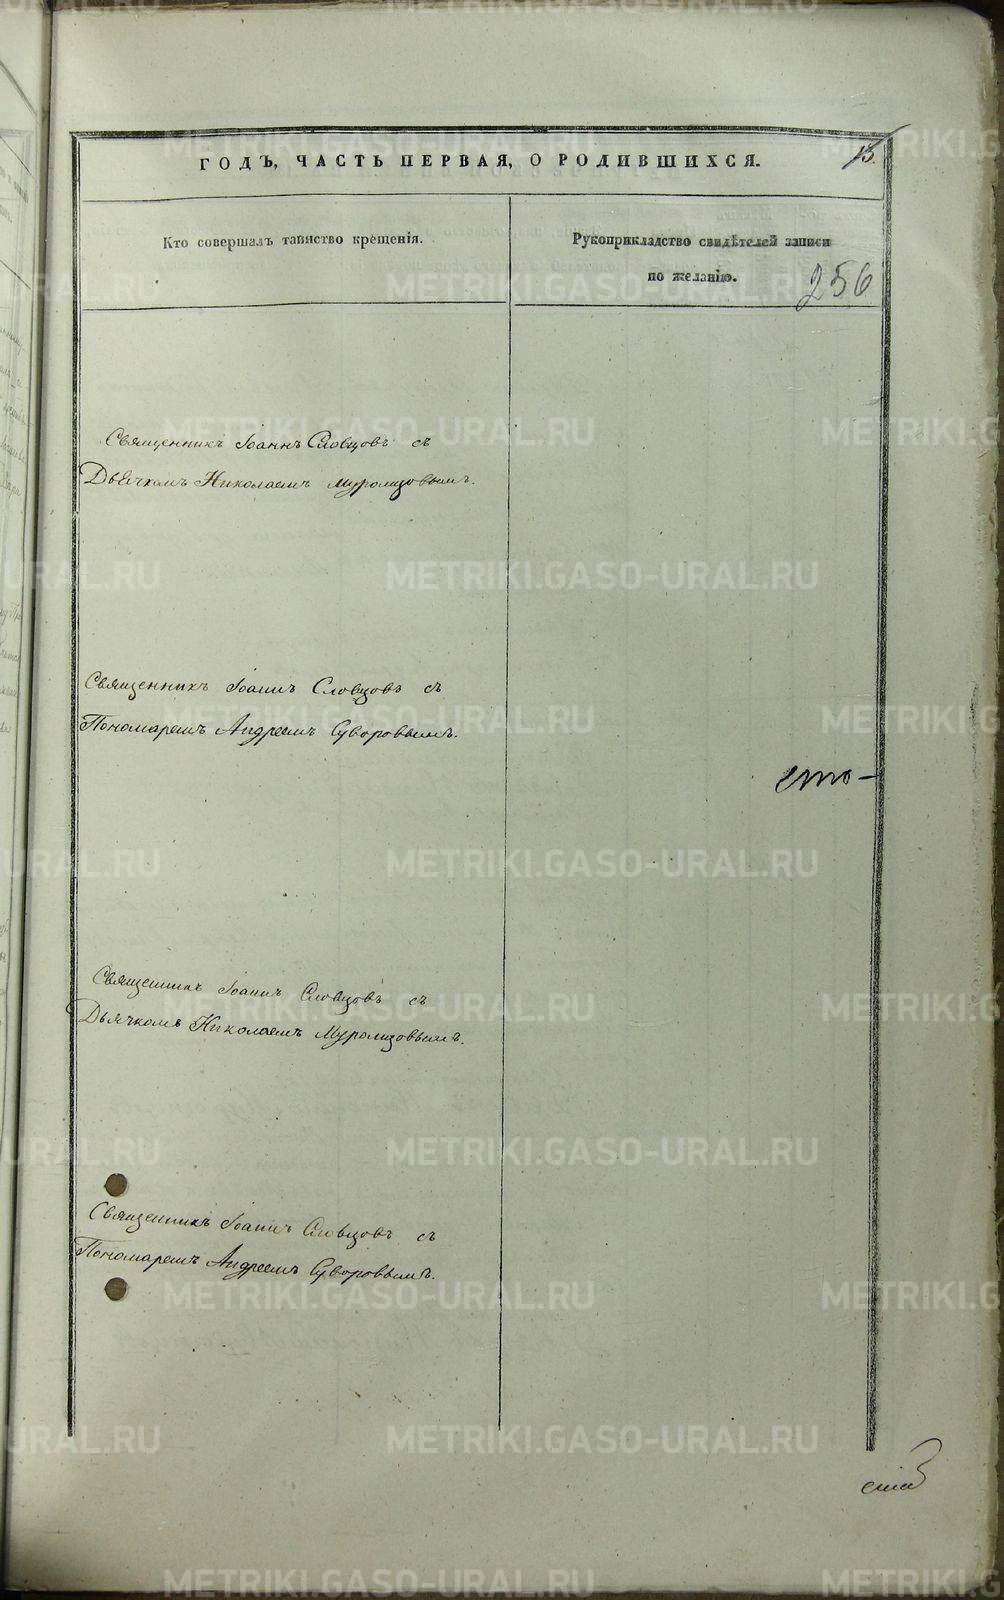 ГОДЪ, ЧАСТЬ ПЕРВАЯ, О РОДИВШИХСЯ.
13.
Кто совершалъ таинство крещенія.
Рукоприкладство свидѣтелей записи
по желанію.
256
Священникъ Іоаннъ Словцовъ съ
Дьячкомъ Николаемъ Муромцовымъ.
Священникъ Іоаннъ Словцовъ съ
Пономаремъ Андреемъ Суворовымъ.
сто-
Священникъ Іоаннъ Словцовъ съ
Дьячкомъ Николаемъ Муромцовымъ.
Священникъ Іоаннъ Словцовъ съ
Пономаремъ Андреемъ Суворовымъ.
METRIKI.GASO-URAL.RU